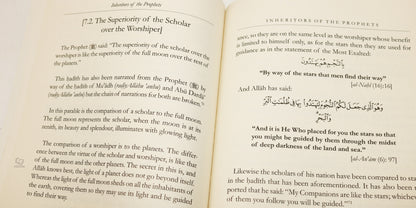 Inheritors of the Prophets
[7.2. The Superiority of the Scholar
over the Worshiper]
The Prophet (ﷺ) said: "The superiority of the scholar over the
worshiper is like the superiority of the full moon over the rest of
the planets."
This hadith has also been narrated from the Prophet (ﷺ) by
way of the hadith of Mu'ādh (radiy-Allāhu 'anhu) and Abū Dardā'
(radiy-Allāhu 'anhu) but their narrations for both are broken.
In this parable is the comparison of a scholar to the full moon.
The full moon represents the scholar, when the moon is at its
zenith, in beauty and splendour, illuminates with glowing light.
The comparison of a worshiper is to the planets. The difference
between the virtue of the scholar and worshiper, is like that
of the full moon and the other planets. The secret in this is, and
Allāh knows best, the light of a planet does not go beyond itself.
Whereas the light of the full moon sheds on all the inhabitants of
the earth, covering them so they may use its light and be guided
to find their way.
INHERITORS OF THE PROPHETS
sence, so they are on the same level in the worshiper whose benefit
is limited to himself only, as for the stars then they are used for
guidance as in the statement of the Most Exalted:
وَبِالنَّجْمِ هُمْ يَهْتَدُونَ
"By way of the stars that men find their way"
[al-Nahl (16):16]
And Allāh has said:
وَهُوَ الَّذِي جَعَلَ لَكُمُ النُّجُومَ لِتَهْتَدُوا بِهَا فِي ظُلُمَاتِ الْبَرِّ
وَالْبَحْرِ
"And it is He Who placed for you the stars so that
you might be guided by them through the midst
of deep darkness of the land and sea."
[al-An'ām (6): 97]
Likewise the scholars of his nation have been compared to stars
in the hadith that has been aforementioned. It has also been
ported that he said: "My Companions are like the stars; which
of them you follow you will be guided."